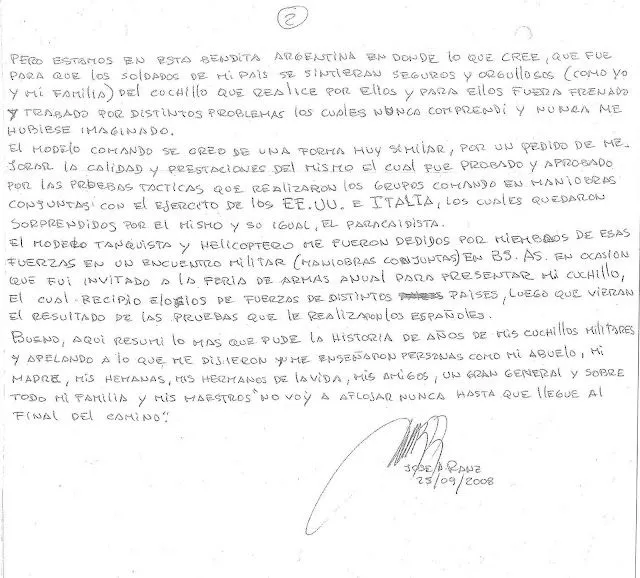 2
PERO ESTAMOS EN ESTA BENDITA ARGENTINA EN DONDE LO QUE CREE, QUE FUE
PARA QUE LOS SOLDADOS DE MI PAIS SE SINTIERAN SEGUROS Y ORGULLOSOS (COMO YO
Y MI FAMILIA) DEL CUCHILLO QUE REALICE POR ELLOS Y PARA ELLOS FUERA FRENADO
Y TRABADO POR DISTINTOS PROBLEMAS LOS CUALES NUNCA COMPRENDI Y NUNCA ME
HUBIESE IMAGINADO.
EL MODELO COMANDO SE CREO DE UNA FORMA MUY SIMILAR, POR UN PEDIDO DE ME-
JORAR LA CALIDAD Y PRESTACIONES DEL MISMO EL CUAL FUE PROBADO Y APROBADO
POR LAS PRUEBAS TACTICAS QUE REALIZARON LOS GRUPOS COMANDO EN MANIOBRAS
CONJUNTAS CON EL EJERCITO DE LOS EE.UU. E ITALIA, LOS CUALES QUEDARON
SORPRENDIDOS POR EL MISMO Y SU IGUAL, EL PARACAIDISTA.
EL MODELO TANQUISTA Y HELICOPTERO ME FUERON DEDIDOS POR MIEMBROS DE ESAS
FUERZAS EN UN ENCUENTRO MILITAR (MANIOBRAS CONJUNTAS) EN BS. AS. EN OCASION
QUE FUI INVITADO A LA FERIA DE ARMAS ANUAL PARA PRESENTAR MI CUCHILLO,
EL CUAL RECIPIO ELOGIOS DE FUERZAS DE DISTINTOS PAISES, LUEGO QUE VIERAN
EL RESULTADO DE LAS PRUEBAS QUE LE REALIZARON LOS ESPAÑOLES.
BUENO, AQUI RESUMI LO MAS QUE PUDE LA HISTORIA DE AÑOS DE MIS CUCHILLOS MILITARES
Y APELANDO A LO QUE ME DIJIERON Y ME ENSEÑARON PERSONAS COMO MI ABUELO, MI
MADRE, MIS HEMANAS, MIS HERMANOS DE LA VIDA, MIS AMIGOS, UN GRAN GENERAL Y SOBRE
TODO MI FAMILIA Y MIS MAESTROS "NO VOY A AFLOJAR NUNCA HASTA QUE LLEGUE AL
FINAL DEL CAMINO".
JOSE A RANZ
25/09/2008